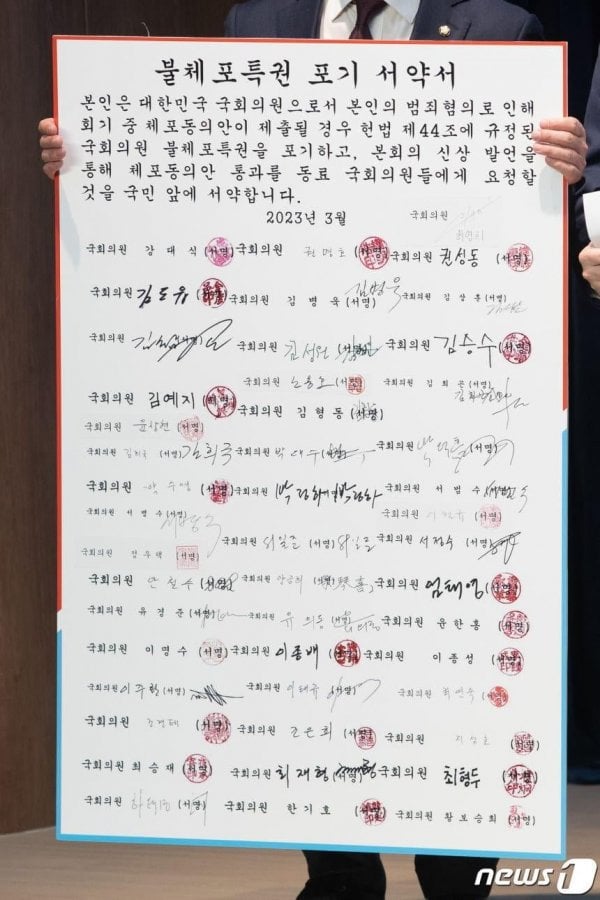 불체포특권 포기 서약서
본인은 대한민국 국회의원으로서 본인의 범죄혐의로 인해
회기 중 체포동의안이 제출될 경우 헌법 제44조에 규정된
국회의원 불체포특권을 포기하고, 본회의 신상 발언을
통해 체포동의안 통과를 동료 국회의원들에게 요청할
것을 국민 앞에 서약합니다.
2023년 3월
국회의원
국회의원 강대식 (서명) 국회의원 권명호 (서명) 국회의원 권성동 (서명)
국회의원 김도읍 국회의원 김병욱 (서명) 김병욱 국회의원 김상훈 (서명)
국회의원 국회의원 김성원 (서명) 국회의원 김승수 (서명)
국회의원 노용호 (서명) 국회의원 김희곤 (서명)
국회의원 김예지 (서명) 국회의원 김형동 (서명)
국회의원 윤창현 (서명)
국회의원 김희국 (서명) 김희국 국회의원 박대수 (서명) 국회의원
국회의원 박수영 (서명) 국회의원 박정하 (서명) 박정하 국회의원 서범수 (서명)
국회의원 서병수 (서명) 국회의원 (서명)
국회의원 정우택 (서명) 국회의원 서일준 (서명) 서일준 국회의원 서정숙 (서명)
국회의원 안철수 (서명) 국회의원 국회의원 엄태영 (서명)
국회의원 유경준 (서명) 국회의원 유의동 국회의원 윤한홍 (서명)
국회의원 이명수 (서명) 국회의원 이종배 (서명) 국회의원 이종성 (서명)
국회의원 이주환 (서명) 국회의원 이태규 (서명) 국회의원 최연숙 (서명)
국회의원 (서명) 국회의원 조은희 (서명) 국회의원 지성호 (서명)
국회의원 최승재 (서명) 국회의원 최재형 (서명) 국회의원 최형두 (서명)
국회의원 하태경 (서명) 국회의원 한기호 (서명) 국회의원 황보승희 (서명)
news1